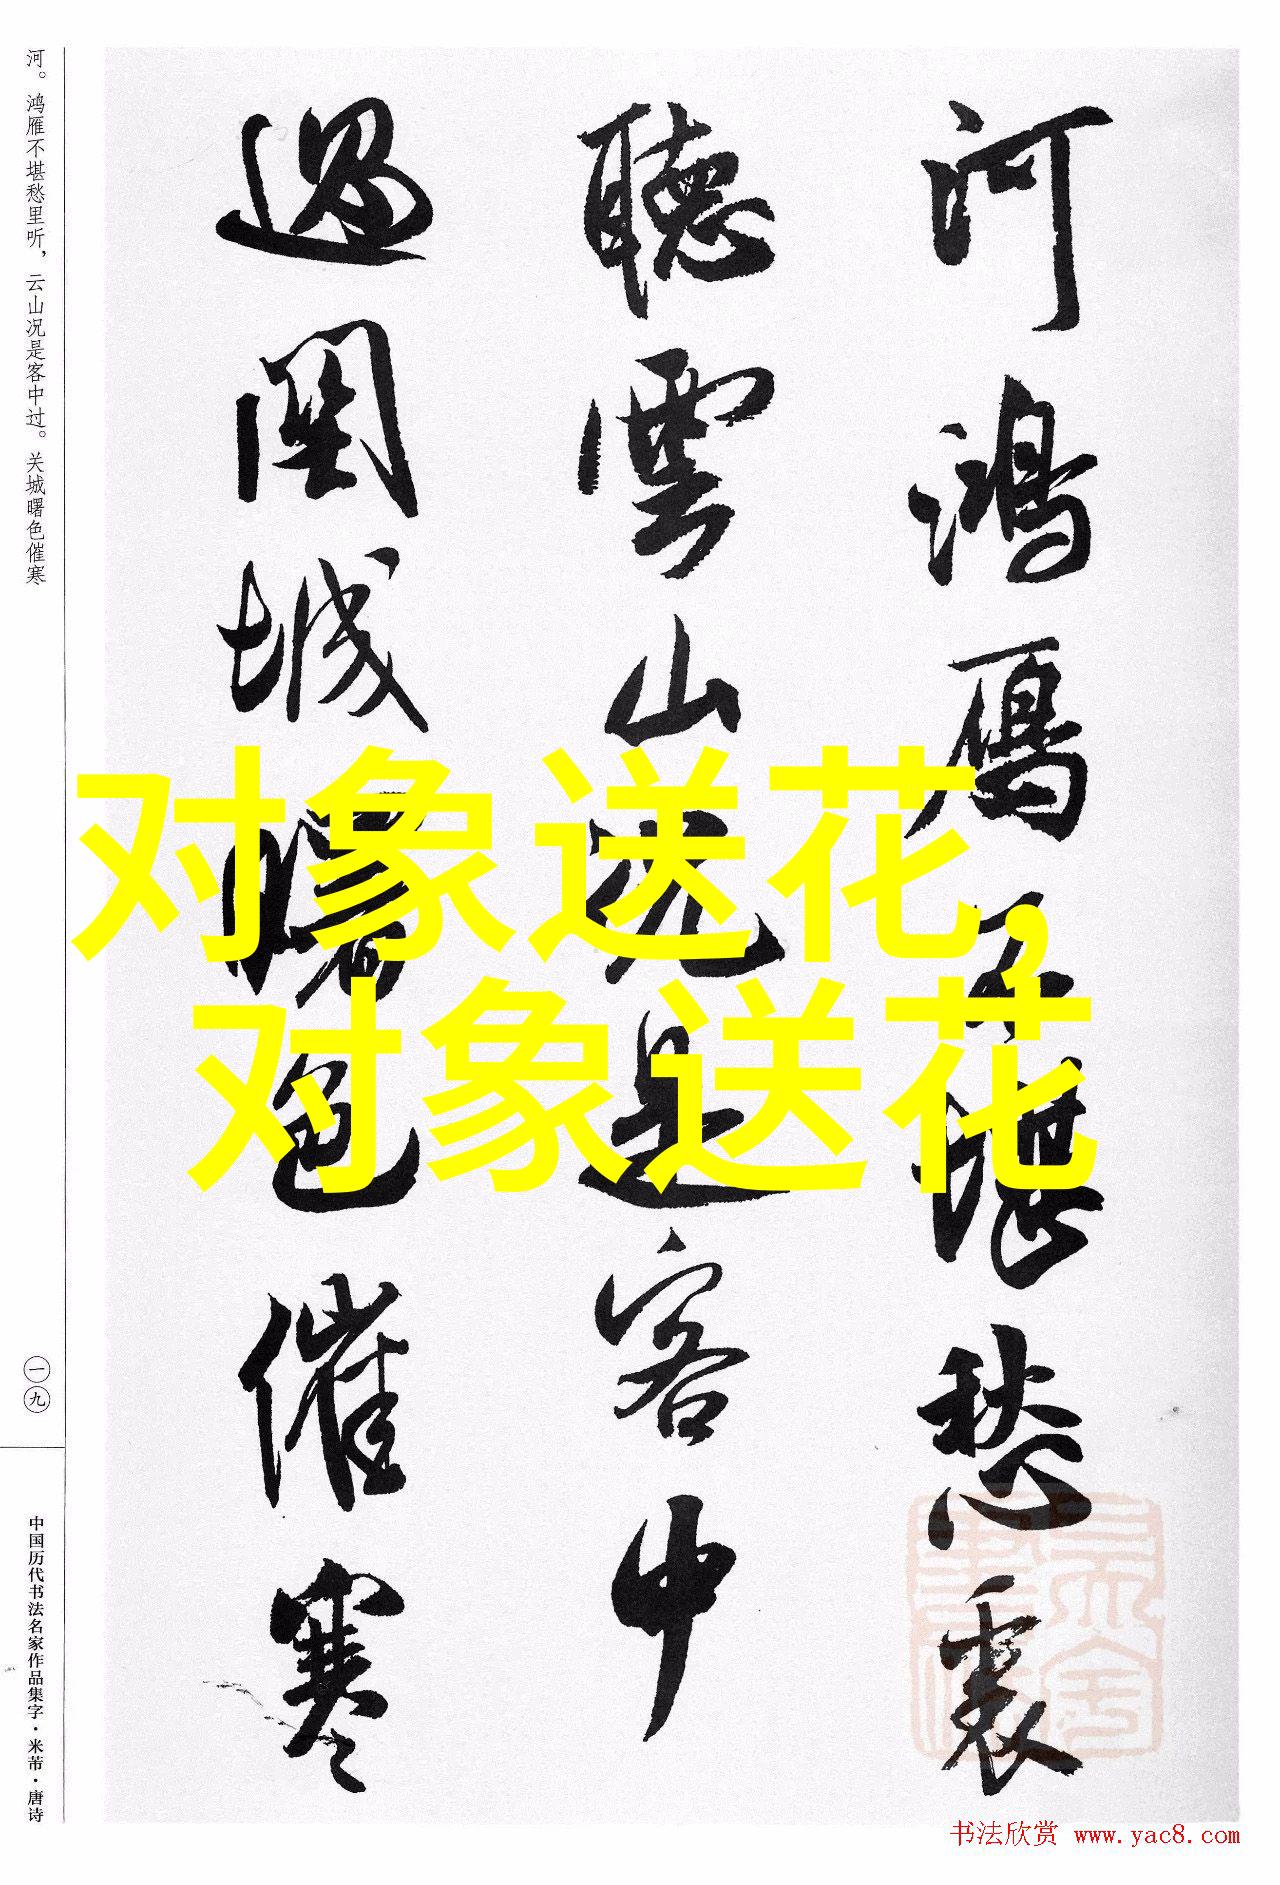 河鴻雁不堪愁裏
聽雲山況是客中
過關城曙色催寒
河。鸿雁不堪愁里听，云山况是客中过。关城曙色催寒
一九
中国历代书法名家作品集字·米芾·唐诗
对象送花，
对象送花
书法欣赏 www.yac8.com